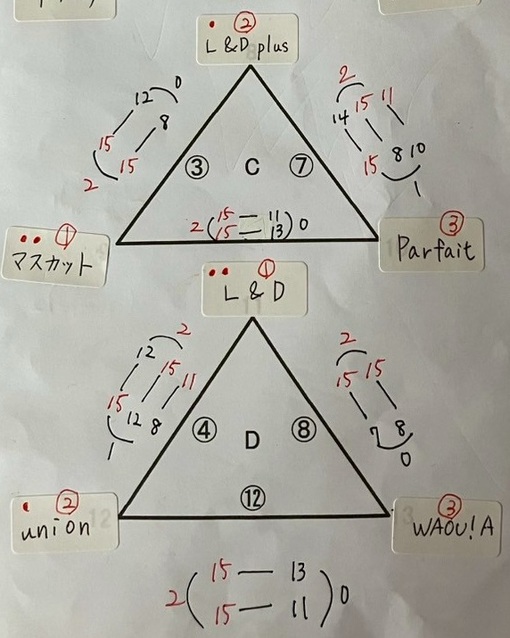 ②
L&D plus
12 0
15 8
15
2
2
14 15 11
15 8 10
1
③ C ⑦
2(15 — 11)0
15 — 13
①
マスカット
③
Parfait
①
L & D
2
12 15 11
15 12 8
1
2
15 15
7 8
0
④ D ⑧
⑫
②
union
③
WAOU!A
2(15 — 13)0
15 — 11